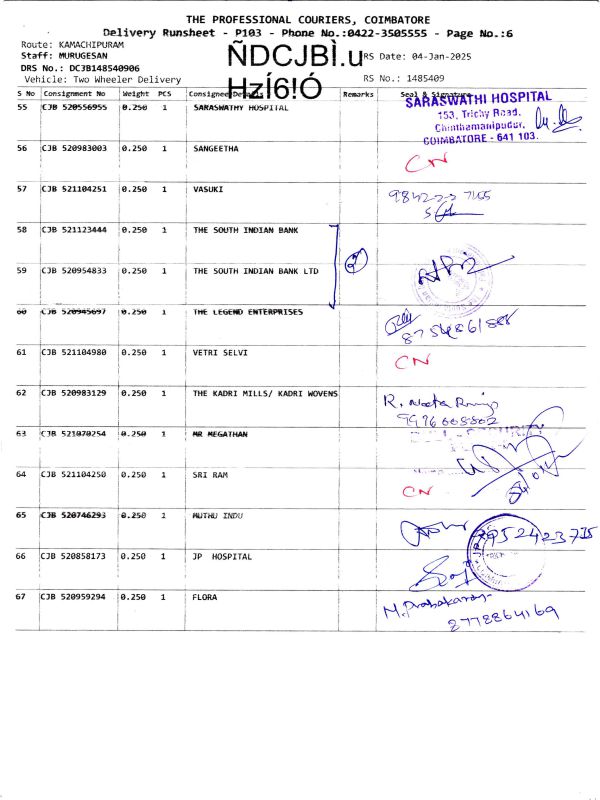 THE PROFESSIONAL COURIERS, COIMBATORE
Delivery Runsheet - P103 - Phone No.:0422-3505555 - Page No.:6
Route: KAMACHIPURAM
Staff: MURUGESAN
DRS No.: DCJB148540906
Vehicle: Two Wheeler Delivery
ÑDCJBÌ.u
HzÍ6!Ó
RS Date: 04-Jan-2025
RS No.: 1485409
S No Consignment No Weight PCS Consignee Details Remarks Seal & Signature
55 CJB 520556955 0.250 1 SARASWATHY HOSPITAL
SARASWATHI HOSPITAL
153, Trichy Road,
Chinthamanipudur,
COIMBATORE - 641 103.
56 CJB 520983003 0.250 1 SANGEETHA CN
57 CJB 521104251 0.250 1 VASUKI
58 CJB 521123444 0.250 1 THE SOUTH INDIAN BANK
59 CJB 520954833 0.250 1 THE SOUTH INDIAN BANK LTD
60 CJB 520945697 0.250 1 THE LEGEND ENTERPRISES
61 CJB 521104980 0.250 1 VETRI SELVI CN
62 CJB 520983129 0.250 1 THE KADRI MILLS/ KADRI WOVENS
63 CJB 521070254 0.250 1 MR MEGATHAN
64 CJB 521104250 0.250 1 SRI RAM CN
65 CJB 520746293 0.250 1 MUTHU INDU
66 CJB 520858173 0.250 1 JP HOSPITAL
67 CJB 520959294 0.250 1 FLORA
M. Prabakaran